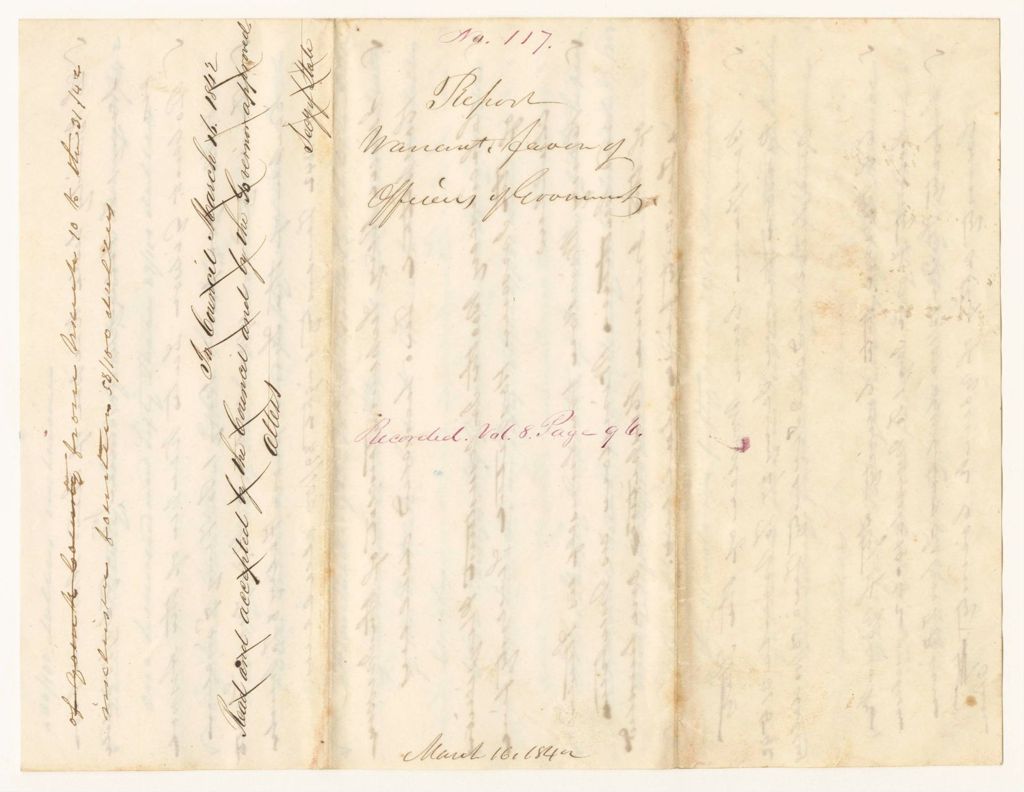 No. 117.
Report
Warrant favor of
Officers of Government
Recorded. Vol. 8. Page 96.
March 16, 1842
of York County from March 10 to the 31/42
inclusive fourteen 58/100 dollars
In Council March 16. 1842
Read and accepted by the Council and by the Governor approved
Attest
Secy of State